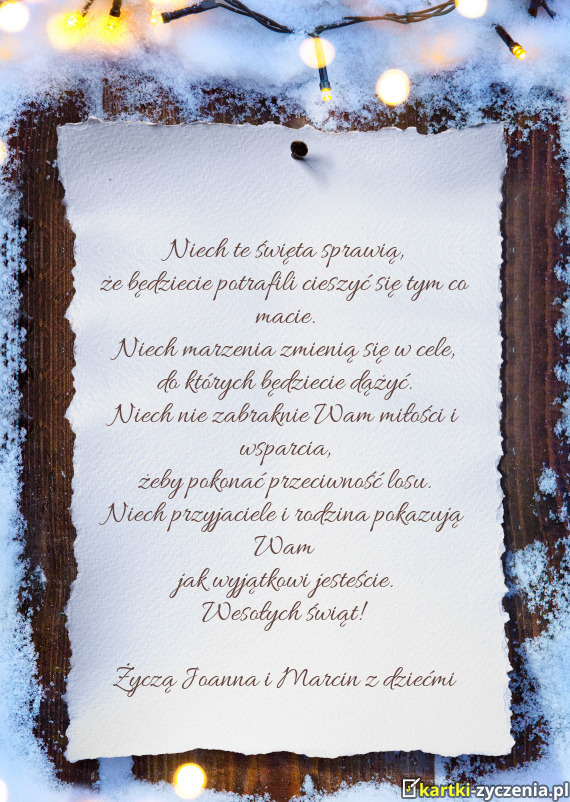 Niech te święta sprawią,
że będziecie potrafili cieszyć się tym co
macie.
Niech marzenia zmienią się w cele,
do których będziecie dążyć.
Niech nie zabraknie Wam miłości i
wsparcia,
żeby pokonać przeciwność losu.
Niech przyjaciele i rodzina pokazują
Wam
jak wyjątkowi jesteście.
Wesołych świąt!
Życzą Joanna i Marcin z dziećmi
kartki-zyczenia.pl